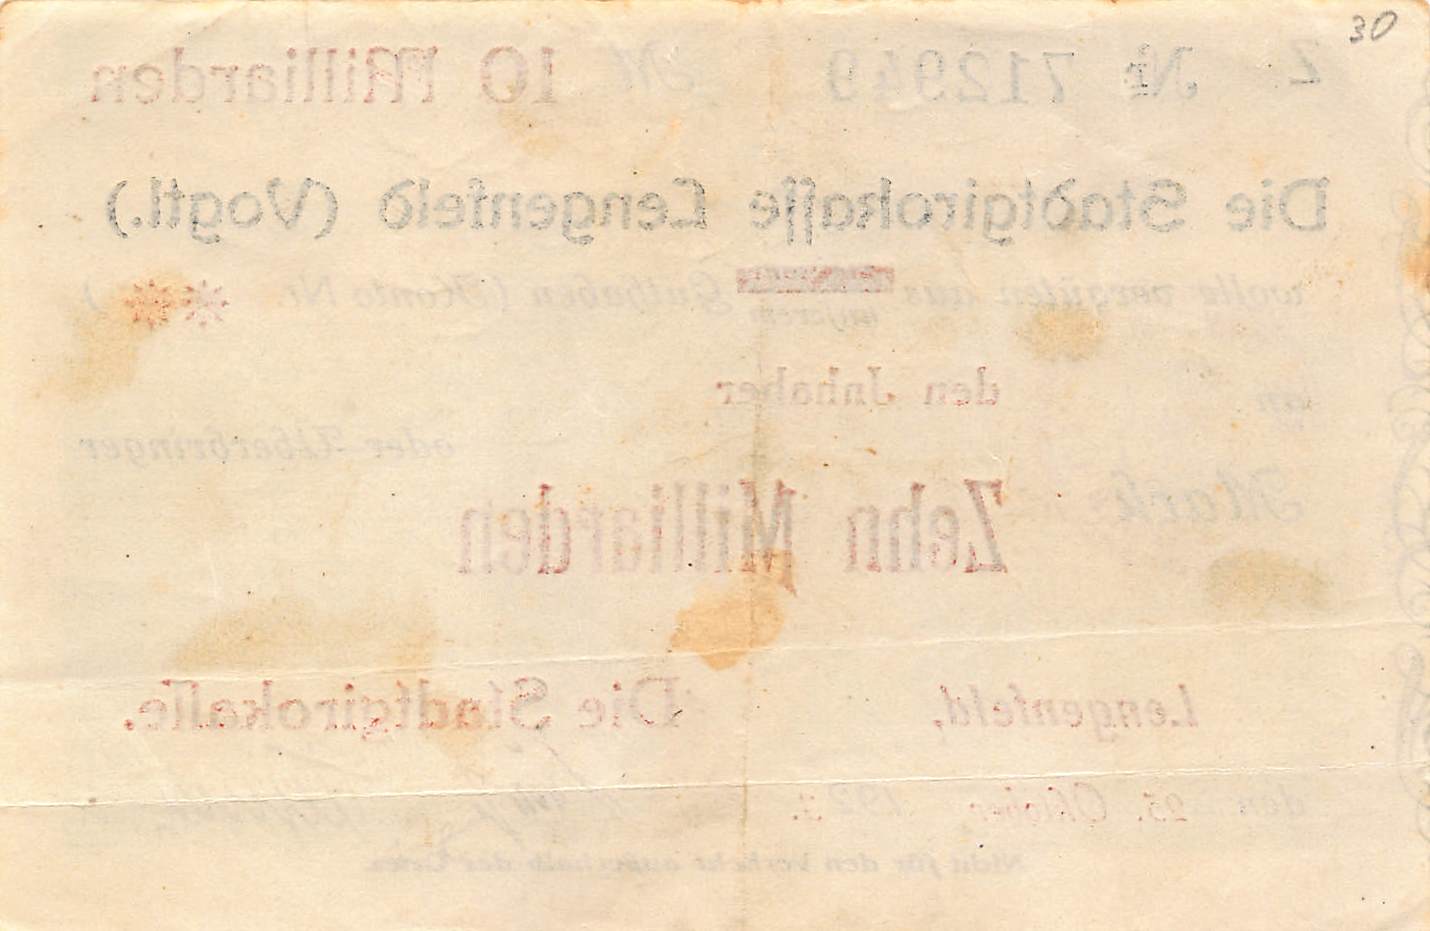 30
Z № 712949 M 10 Milliarden
Die Stadtgirokasse Lengenfeld (Vogtl.)
wolle vergüten aus unserem Guthaben (Konto Nr. )
an den Inhaber
oder Überbringer
Mark Zehn Milliarden
Lengenfeld, Die Stadtgirokasse.
den 25. Oktober 1923.
Nicht für den Verkehr außerhalb des